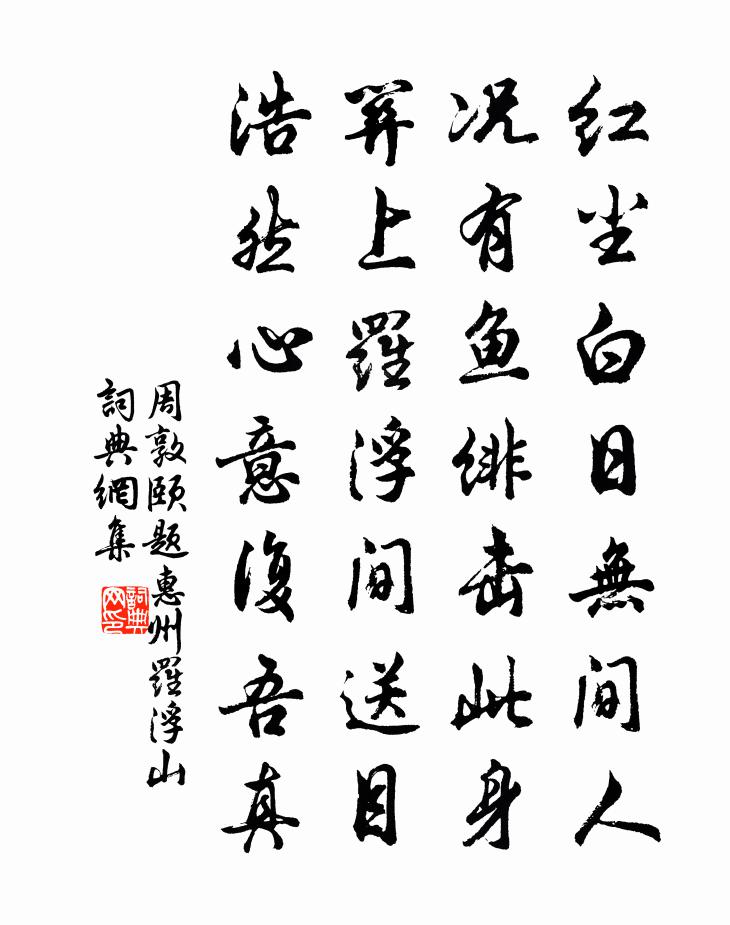 红尘白日無间人
况有鱼绯击此身
關上羅浮间送目
浩然心意復吾真
周敦颐题惠州羅浮山
詞典網集
詞典网印